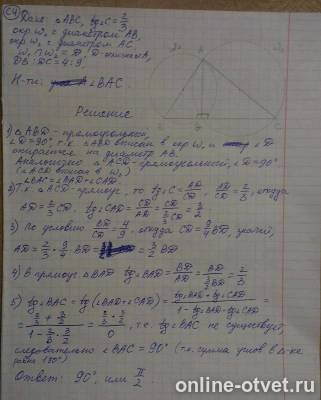 C4
Дано: △ABC, tg∠C = 2/3
окр w₁ с диаметром AB,
окр w₂ с диаметром AC,
w₁ ∩ w₂ = D, D отлична A,
DB : DC = 4 : 9.
Н-ти: ∠BAC
A
B
D
C
Решение
1) △ABD - прямоугольный,
∠D = 90°, т.к. △ABD вписан в окр w₁ и ∠D
опирается на диаметр AB.
Аналогично △ACD - прямоугольный, ∠D = 90°
(△ACD вписан в w₂)
∠BAC = ∠BAD + ∠CAD.
2) Т.к. △ACD - прямоуг, то tg∠C = AD/CD, AD/CD = 2/3, откуда
AD = 2/3 CD. tg∠CAD = CD/AD = CD/(2/3 CD) = 3/2
3) По условию BD/CD = 4/9, откуда CD = 9/4 BD,
AD = 2/3 · 9/4 BD = 3/2 BD
4) В прямоуг. △BAD tg∠BAD = BD/AD = BD/(3/2 BD) = 2/3
5) tg∠BAC = tg(∠BAD + ∠CAD) = (tg∠BAD + tg∠CAD)/(1 - tg∠BAD · tg∠CAD) =
= (2/3 + 3/2)/(1 - 2/3 · 3/2) = (2/3 + 3/2)/0, т.е. tg∠BAC не существует,
следовательно ∠BAC = 90° (т.к. сумма углов в △-ке
равна 180°)
Ответ: 90°, или π/2
online-otvet.ru